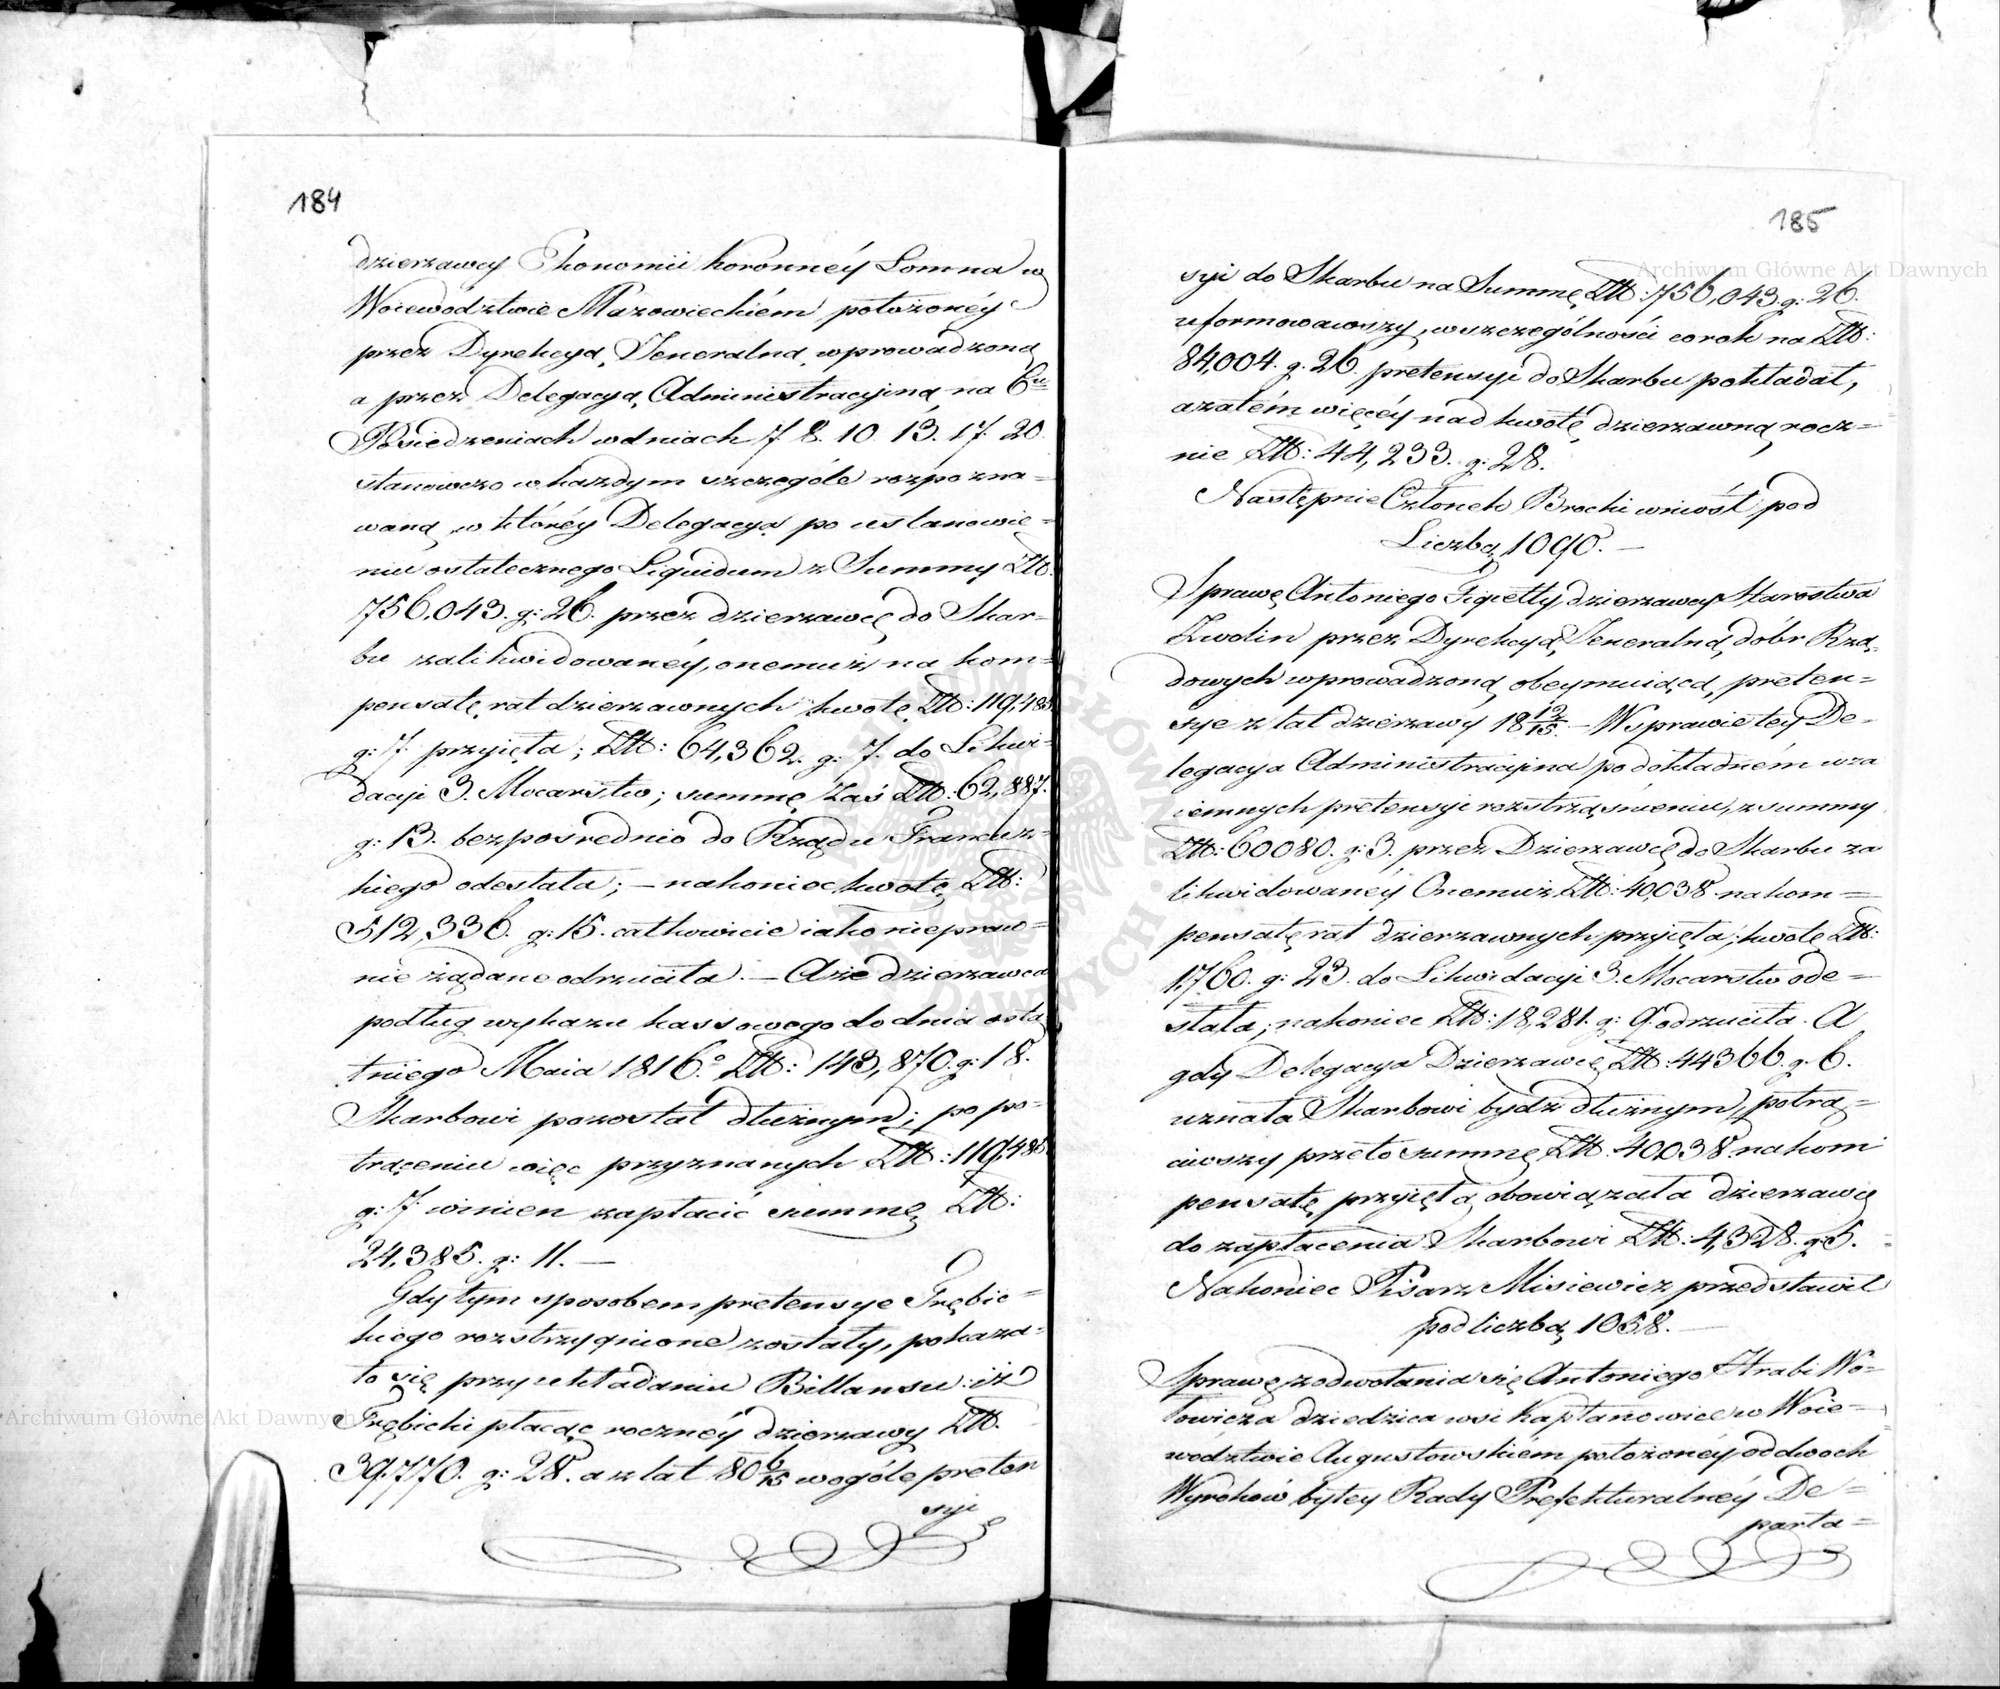 184
dzierzawcy Ekonomii koronnéy Łomna w
Woiewództwie Mazowieckiém położonéy
przez Dyrekcyą Jeneralną wprowadzoną
a przez Delegacyą Administracyiną na 6u
Posiedzeniach w dniach 7 8. 10. 13. 17. 20.
stanowczo w każdym szczególe rozpozna=
waną, w któréy Delegacya po ustanowie=
niu ostatecznego Liquidum z Summy Złł.
756,043. g: 26. przez dzierzawcę do Skar=
bu zalikwidowanéy, onemuż na kom=
pensatę rat dzierzawnych kwotę Złł: 119,485
g: 7. przyięła; Złł: 64,362. g: 7. do Likwi=
dacyi 3. Mocarstw; summę zaś Złł: 62,887.
g: 13. bezpośrednio do Rządu Francuz=
kiego odesłała; – nakoniec kwotę Złł:
512,336. g: 15. całkowicie iako niepraw=
nie żądane odrzuciła. – A że dzierzawca
podług wykazu kassowego do dnia osta
tniego Maia 1816.º Złł: 143,870. g: 18.
Skarbowi pozostał dłużnym; po po=
trąceniu więc przyznanych Złł: 119,485
g: 7. winien zapłacić summę Złł:
24,385. g: 11. —
Gdy tym sposobem pretensye Trębic=
kiego rozstrzygnione zostały, pokaza=
ło się przy układaniu Billansu iż
Trębicki płacąc roczney dzierzawy Złł.
39,770. g: 28. a z lat 80 6/15 w ogóle preten
syi
185
syi do Skarbu na Summę Złł: 756,043. g: 26.
uformowawszy, w szczególności co rok na Złł:
84,004. g. 26. pretensyi do Skarbu pokładał,
a zatém więcéy nad kwotę dzierzawną rocz=
nie Złł: 44,233. g: 28.
Następnie Członek Brocki wniósł pod
Liczbą 1090. —
Sprawę Antoniego Figietty dzierzawcy Starostwa
Zwolin przez Dyrekcyą Jeneralną dóbr Rzą=
dowych wprowadzoną, obeymuiącą preten=
sye z lat dzierzawy 18 12/15. – W sprawie tey De=
legacya Administracyina po dokładném wza
iemnych pretensyi roztrząśnieniu, z summy
Złł: 60080. g: 3. przez Dzierzawcę do Skarbu za
likwidowanéy Onemuż Złł: 40,038 na kom=
pensatę rat dzierzawnych przyięła; kwotę Złł:
1,760. g: 23. do Likwidacyi 3. Mocarstw ode=
słała; nakoniec Złł: 18,281. g: 9. odrzuciła. A
gdy Delegacya Dzierzawcę Złł: 44366. g. 6.
uznała Skarbowi bydź dłużnym, potrą=
ciwszy przeto summę Złł. 40,038. na kom
pensatę przyiętą obowiązała dzierzawcę
do zapłacenia Skarbowi Złł: 4,328. g: 5.
Nakoniec Pisarz Misiewicz przedstawił
pod liczbą 1058. —
Sprawę z odwołania się Antoniego Hrabi Wo=
łowicza dziedzica wsi Kapłanowice w Woie=
wodztwie Augustowskiem położoney od dwoch
Wyroków byłey Rady Prefekturalnéy De=
parta=
Archiwum Główne Akt Dawnych
Archiwum Główne Akt Dawnych